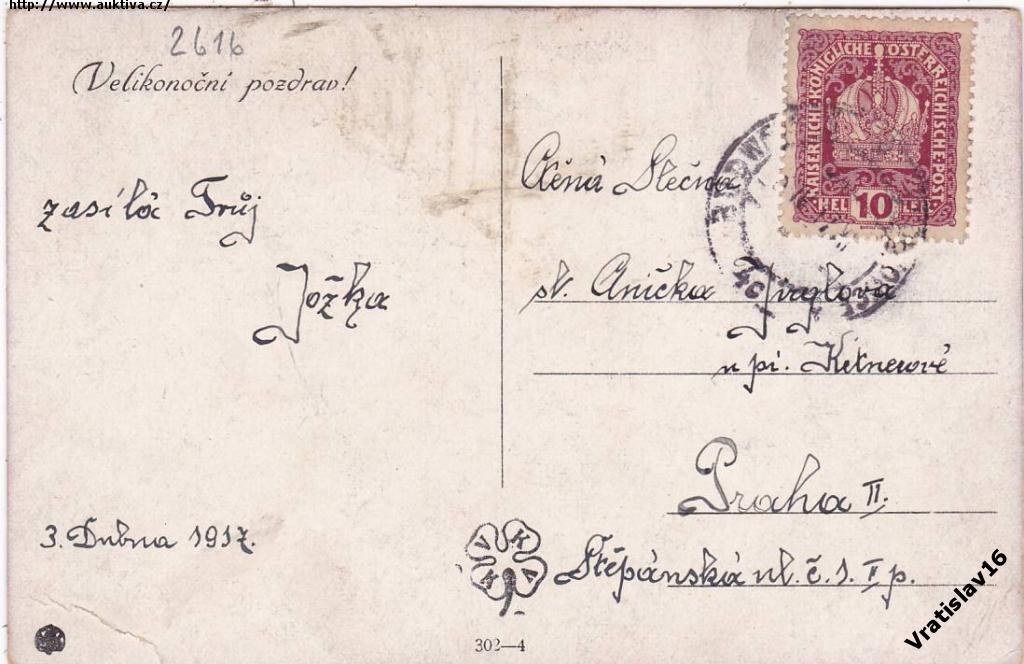 http://www.auktiva.cz/
2616
Velikonoční pozdrav!
zasílá Tvůj
Jožka
3. Dubna 1917.
KAISERLICHE KÖNIGLICHE ÖSTERREICHISCHE POST
HELLER 10
Ctěná Slečna
sl. Anička
u pí.
Praha II.
Štěpánská ul. č. 1. I p.
VKKV
302—4
Vratislav16